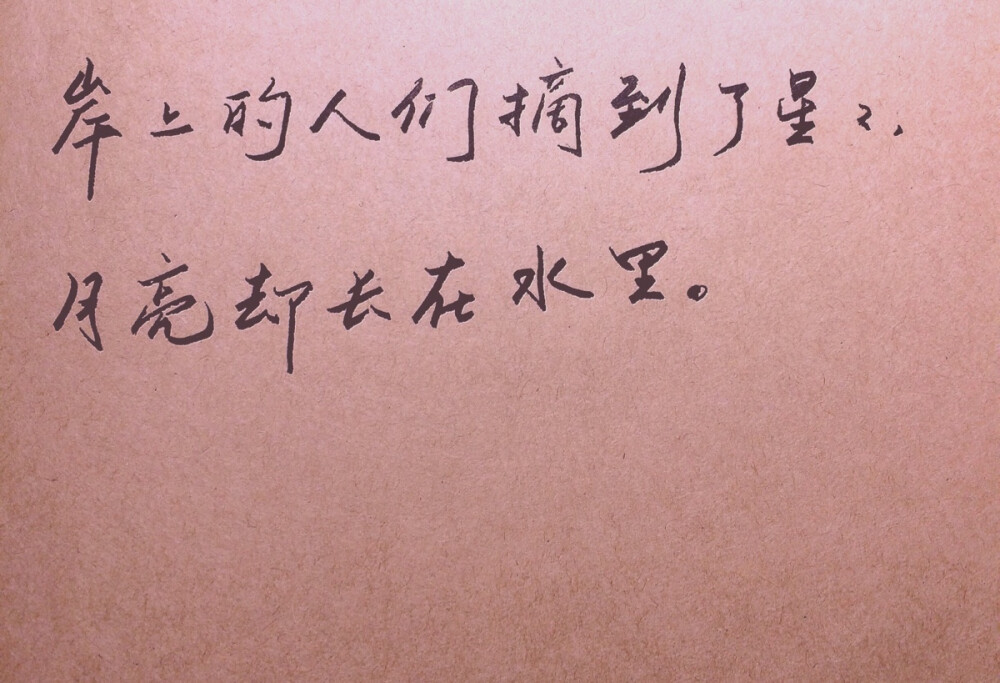 岸上的人们摘到了星々,
月亮却长在水里。